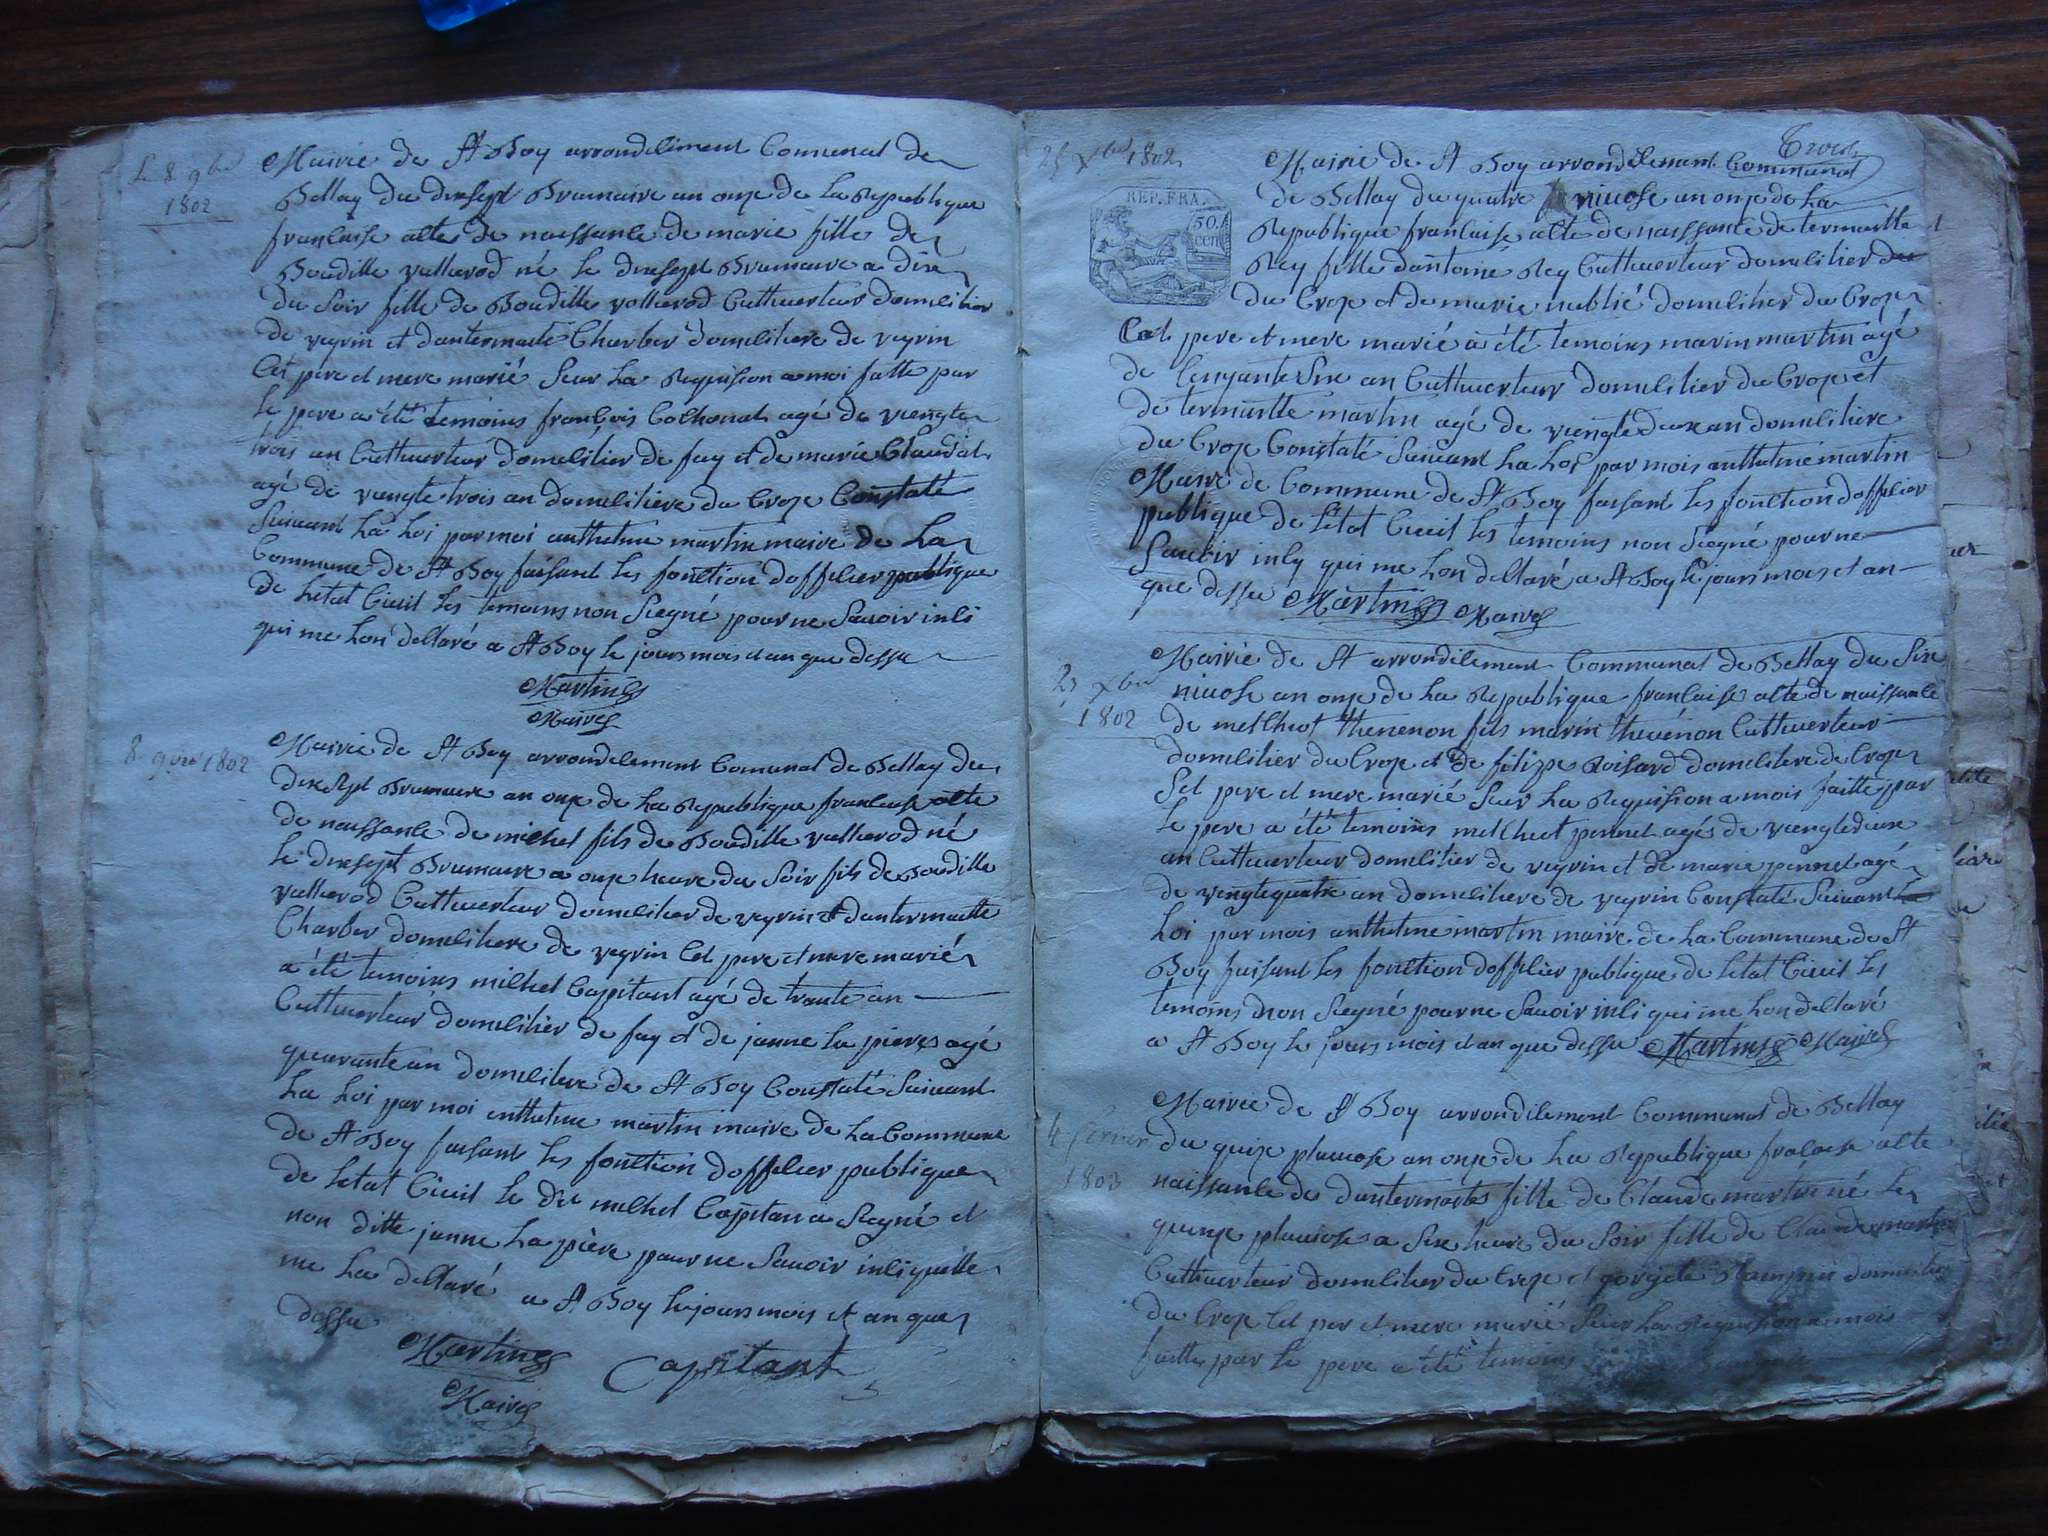 Le 8 9bre
1802
Mairie de St Boy arrondilement Comunal de
Bellay du dixsept Brumaire an onze de La Republique
franlaise alte de naissante de marie fille de
Boudille vullierod né le dixsept Brumaire a dix
du Soir fille de Boudille vollierod Cultiverteur domilitier
de veyrin et dantermaite Charber domilitiere de veyrin
Cet pere et mere marié Seur La Requision a moi faitte par
le pere a été temoins franlois Cochonat agé de viengte
trois an Cultiverteur domilitier de fay et de marie Claudat
agé de viengte trois an domilitiere du Croze Constaté
Suivant La Loi par moi anthetme martin maire de La
Commune de St Boy faisant les fonltion doffilier publique
de letat Civil les temoins non Siegné pour ne Savoir inli
qui me Lon deltaré a St Boy le jours mois et an que dessu
Martin
Maire
8 9bre 1802
Mairie de St Boy arrondilement Comunal de Bellay du
dixsept Brumaire an onze de La Republique franlaise alte
de naissante de michel fils de Boudille vullierod né
le dixsept Brumaire a onze heure du Soir fils de Boudille
vullierod Cultiverteur domilitier de veyrin et dantermaitte
Charber domilitiere de veyrin Cet pere et mere marié
a été temoins milhel Capitant agé de trante an
Cultiverteur domilitier de fay et de janne La pieres agé
quarante an domilitiere de St Boy Constaté Suivant
La Loi par moi anthetme martin maire de La Commune
de St Boy faisant les fonltion doffilier publique
de letat Civil le dit milhel Capitan a Siegné et
non ditte janne La pière pour ne Savoir inli quelle
me La deltaré a St Boy le jours mois et an que
dessu
Martin
Maire
Capitant
Trois
25 Xbre 1802
REP. FRA.
50.
cen
Mairie de St Boy arrondilement Communal
de Bellay du quatre nivose an onze de La
Republique franlaise alte de naissante de termaitte
Rey fille dantoine Rey Cultiverteur domilitier du
du Croze et de marie nublié domilitier du Croze
Cet pere et mere marié à été temoins marin martin agé
de Cenqante Six an Cultiverteur domilitier du Croze et
de termaitte martin agé de viengte deux an domilitiere
du Croze Constaté Suivant La Loi par mois anthetme martin
Maire de Commune de St Boy faisant les fonltion doffilier
publique de létat Civil les temoins non Siegné pour ne
Savoir inly qui me Lon deltaré a St Boy le jours mois et an
que dessu Martin Maire
27 Xbre
1802
Mairie de St arrondilement Communal de Bellay du Six
nivose an onze de La Republique franlaise alte de naissante
de melchiot thenenon fils marin thevenon Cultiverteur
domilitier du Croze et de félize Roisard domilitiere de Croze
Set pere et mere marié Seur La Requision a mois faitte par
le pere a été temoins melchiot pennet agés de viengtedeux
an Cultiverteur domilitier de veyrin et de marie pennet agé
de viengtequatre an domilitiere de veyrin Constaté Suivant La
Loi par mois anthetme martin maire de La Commune de St
Boy faisant les fonltion doffilier publique de letat Civil les
temoins non Siegné pour ne Savoir inli qui me Lon deltaré
a St Boy le jours mois et an que dessu Martin Maire
4 fevrier
1803
Mairie de St Boy arrondilement Communal de Bellay
du quize pluviose an onze de La Republique fralaise alte
naissante de dantermaites fille de Claude martin né le
quinze pluviose a Six heure du Soir fille de Claude martin
Cultiverteur domilitier du Croze et domilitier
du Croze Cet per et mere marié Seur La Requision a mois
faitte par le pere a été temoins